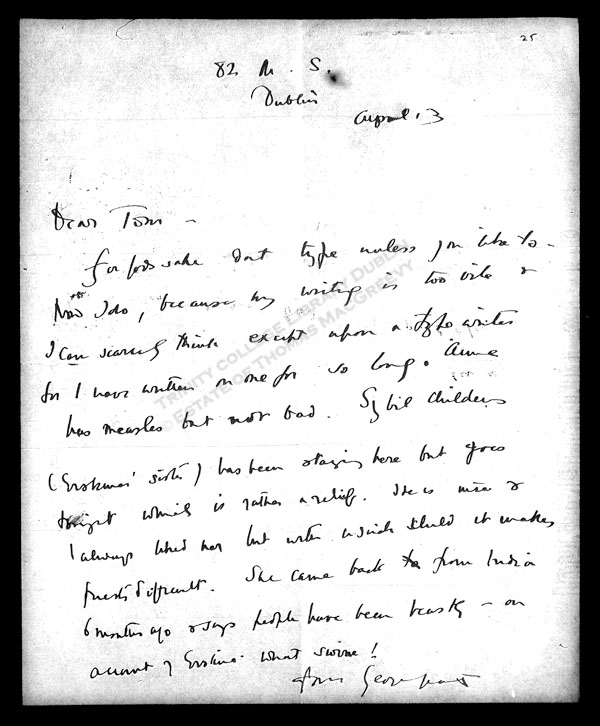 25
82 M. S.
Dublin
April 13
Dear Tom –
For gods sake dont type unless you like to –
Now I do, because my writing is too vile &
I can scarcely think except upon a typewriter
for I have written on one for so long. Anne
has measles but not bad. Sybil Childers
(Erskines' sister) has been staying here but goes
tonight which is rather a relief. She is nice &
I always liked her but with a sick child it makes
guests difficult. She came back from India
6 months ago & says people have been beastly – on
account of Erskine. What swine!
Yours George
TRINITY COLLEGE LIBRARY DUBLIN
© ESTATE OF THOMAS MACGREEVY